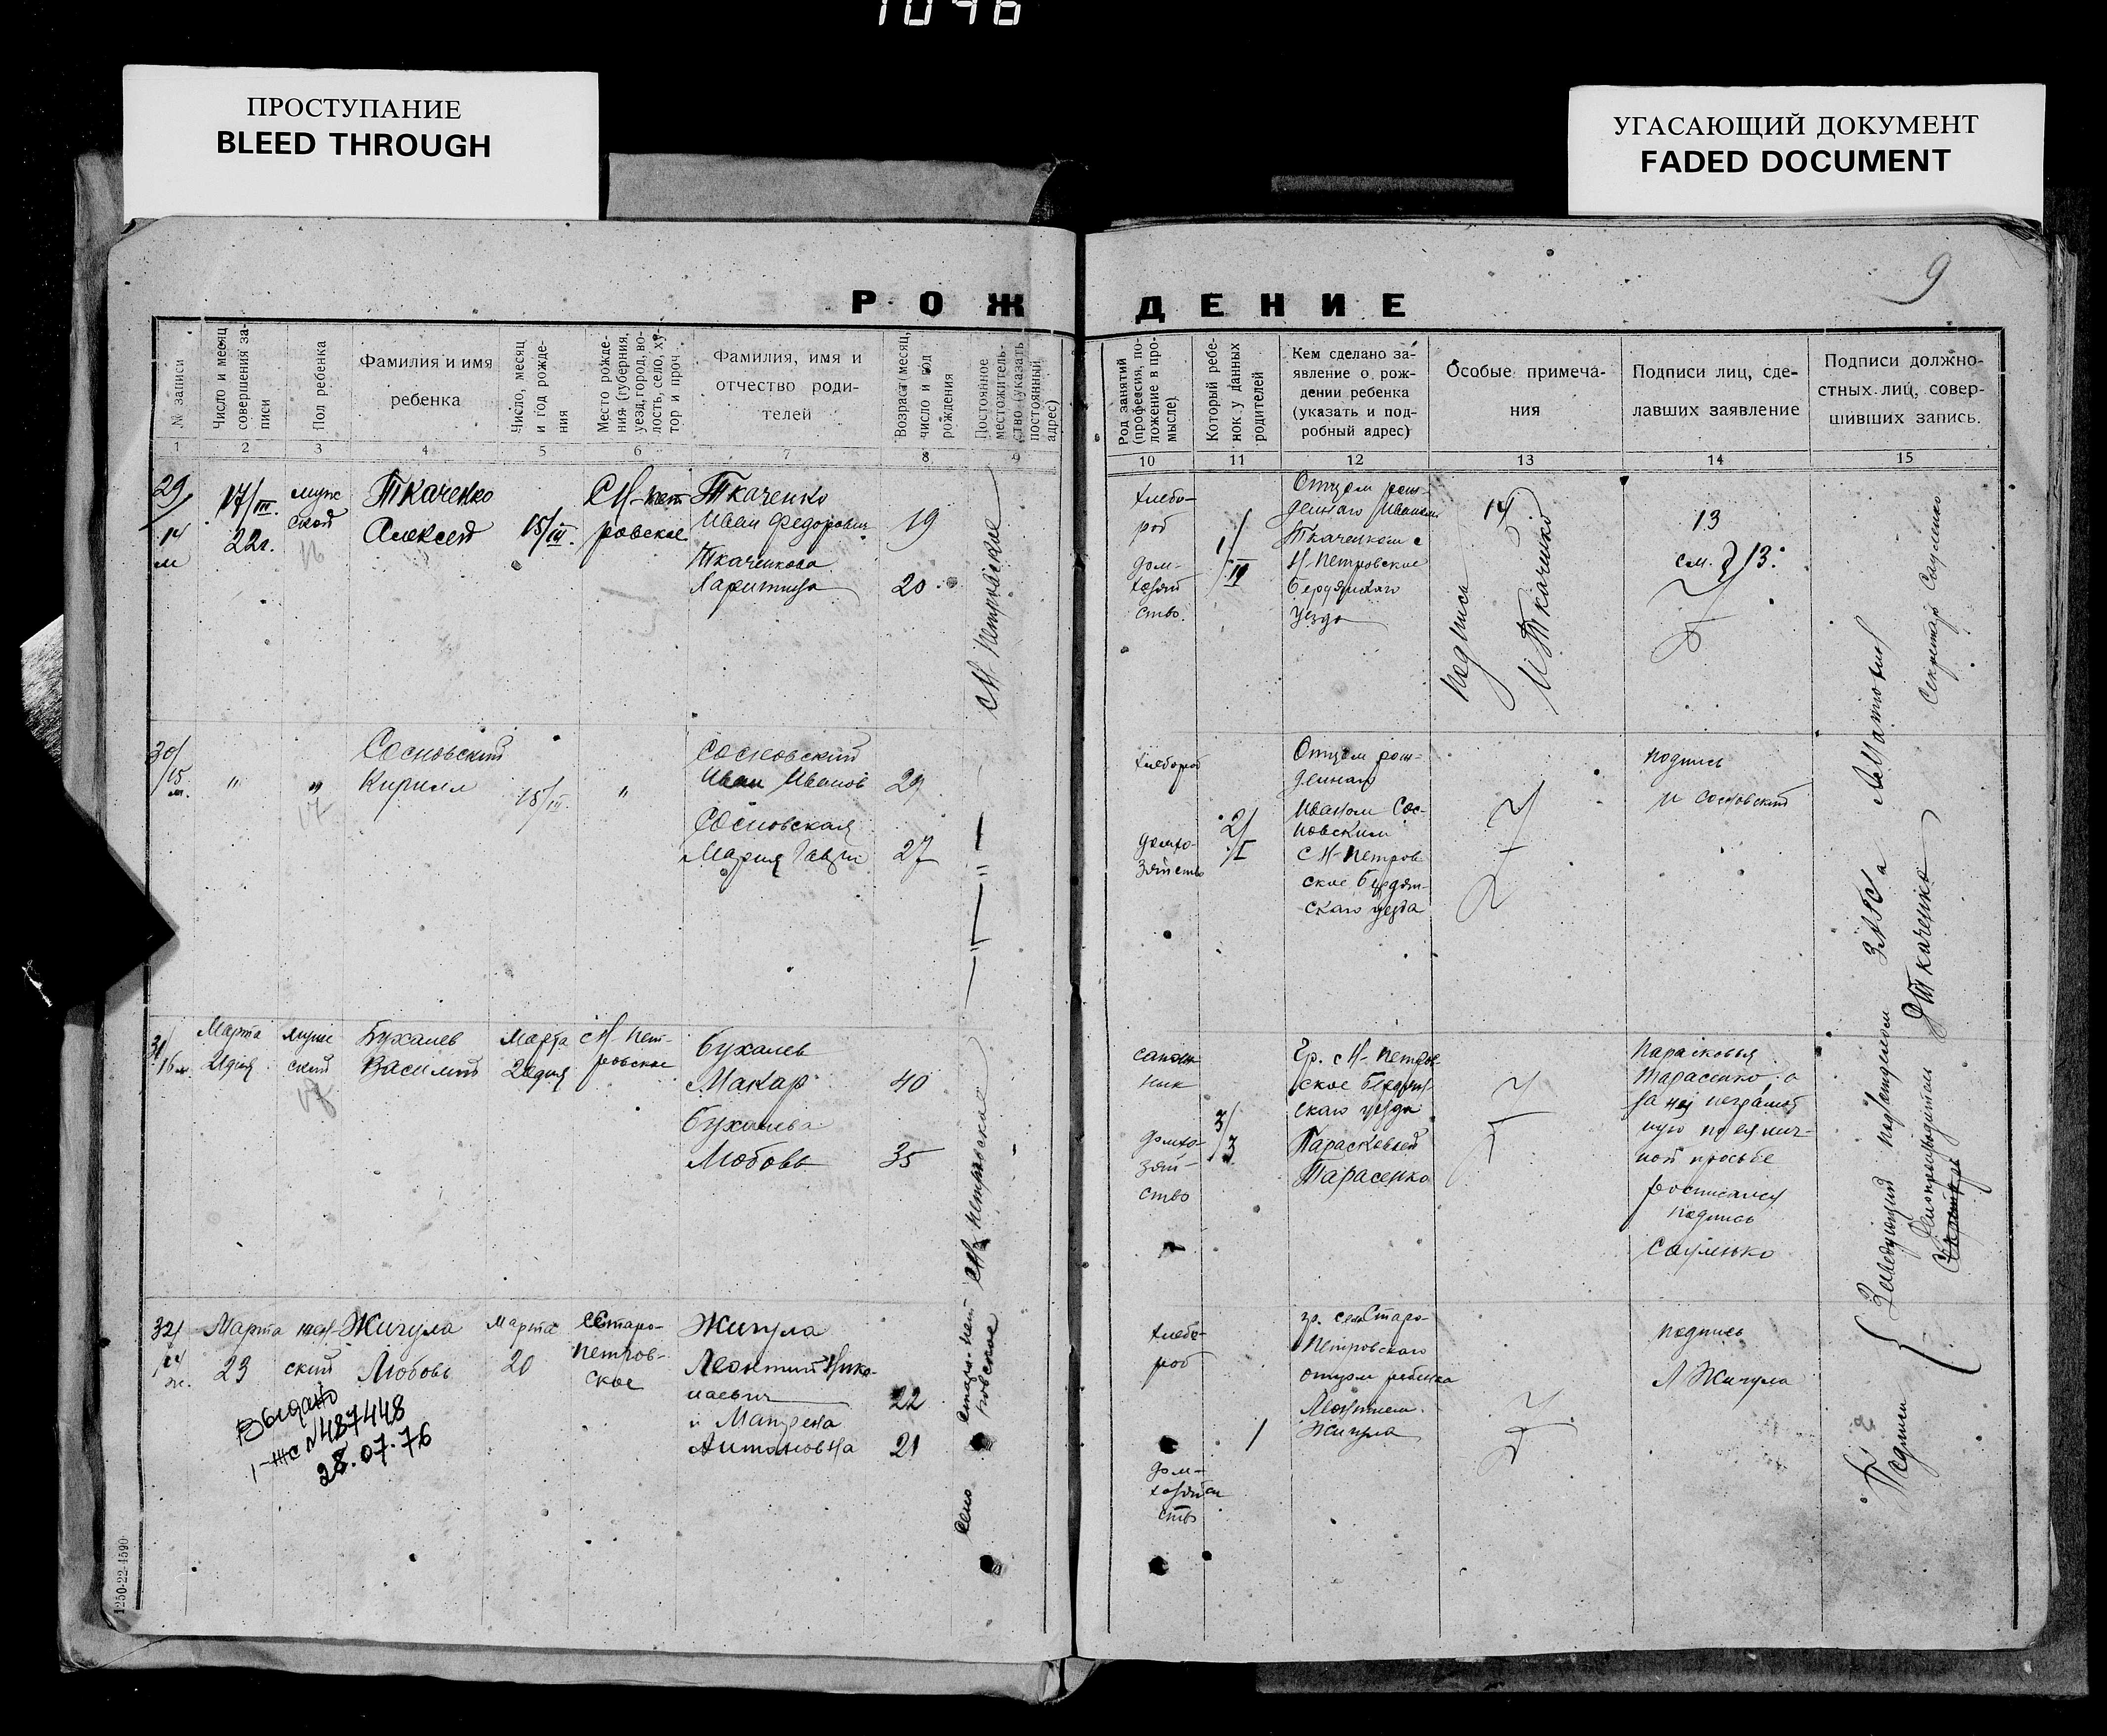 1046
ПРОСТУПАНИЕ
BLEED THROUGH
УГАСАЮЩИЙ ДОКУМЕНТ
FADED DOCUMENT
9
РОЖДЕНИЕ
№ записи
Число и месяц
совершения за-
писи
Пол ребенка
Фамилия и имя
ребенка
Число, месяц
и год рожде-
ния
Место рожде-
ния (губерния,
уезд, город, во-
лость, село, ху-
тор и проч
Фамилия, имя и
отчество роди-
телей
Возраст (месяц,
число и год
рождения
Постоянное
местожитель-
ство (указать
постоянный
адрес)
Род занятий
(профессия, по-
ложение в про-
мысле)
Который ребе-
нок у данных
родителей
Кем сделано за-
явление о рож-
дении ребенка
(указать и под-
робный адрес)
Особые примеча-
ния
Подписи лиц, сде-
лавших заявление
Подписи должно-
стных лиц, совер-
шивших запись.
1 2 3 4 5 6 7 8 9 10 11 12 13 14 15
29/
14
м
17/III.
22г.
муж
ской
16
Ткаченко
Алексей
15/III.
С Н-пет
ровское
Ткаченко
Иван Федорович
19
Ткаченкова
Харитина
20
С Н Петровское
хлебо-
род
дом-
хозяй
ство.
1/
Отцом рож-
деннаго Иваном
Ткаченком с
Н-Петровское
Бердянскаго
уезда
14
подпись
И Ткаченко
13
см. 13.
30/
15
м.
"
"
17
Сосновский
Кирилл
15/III.
"
Сосновский
Иван Иванов
29
Сосновская
Мария Гавр
27
хлебород
домхо-
зяйство
2/
I
Отцом рож-
деннаго
Иваном Сос-
новским
С Н-Петров
ское Бердян-
скаго уезда
подпись
И Сосновский
31/
16 м.
Марта
21 дня
муж
ский
18
Бухалев
Василий
Марта
20 дня
С Н-Пет-
ровское
Бухалев
Макар
40
Бухалева
Любовь
35
С Н Петровское
сапож
ник
домхо-
зяй-
ство
3/
3
Гр. С Н-Петров
ское Бердян
скаго уезда
Параскевией
Тарасенко
Парасковья
Тарасенко а
за ней неграмот
ную по ея лич-
ной просьбе
росписался
подпись
Сауленко
32/
14
ж.
Марта
23
жен
ский
Жигула
Любовь
Марта
20
С Старо-
Петров-
ское
Жигула
Леонтий Нико-
лаевич
22
и Матрена
Антоновна
21
село Старо-Пет
ровское
хлебо-
род
дом-
хозяй
ство
1
гр. села Старо-
Петровскаго
отцом ребенка
Леонтием
Жигула
подпись
Л Жигула
Выдано
I-ЖС №487448
28.07.76
Подписи
Заведующий подотделом ЗАГСа
Делопроизводитель Ткаченко
Секретарь Сауленко
1250-22-4590